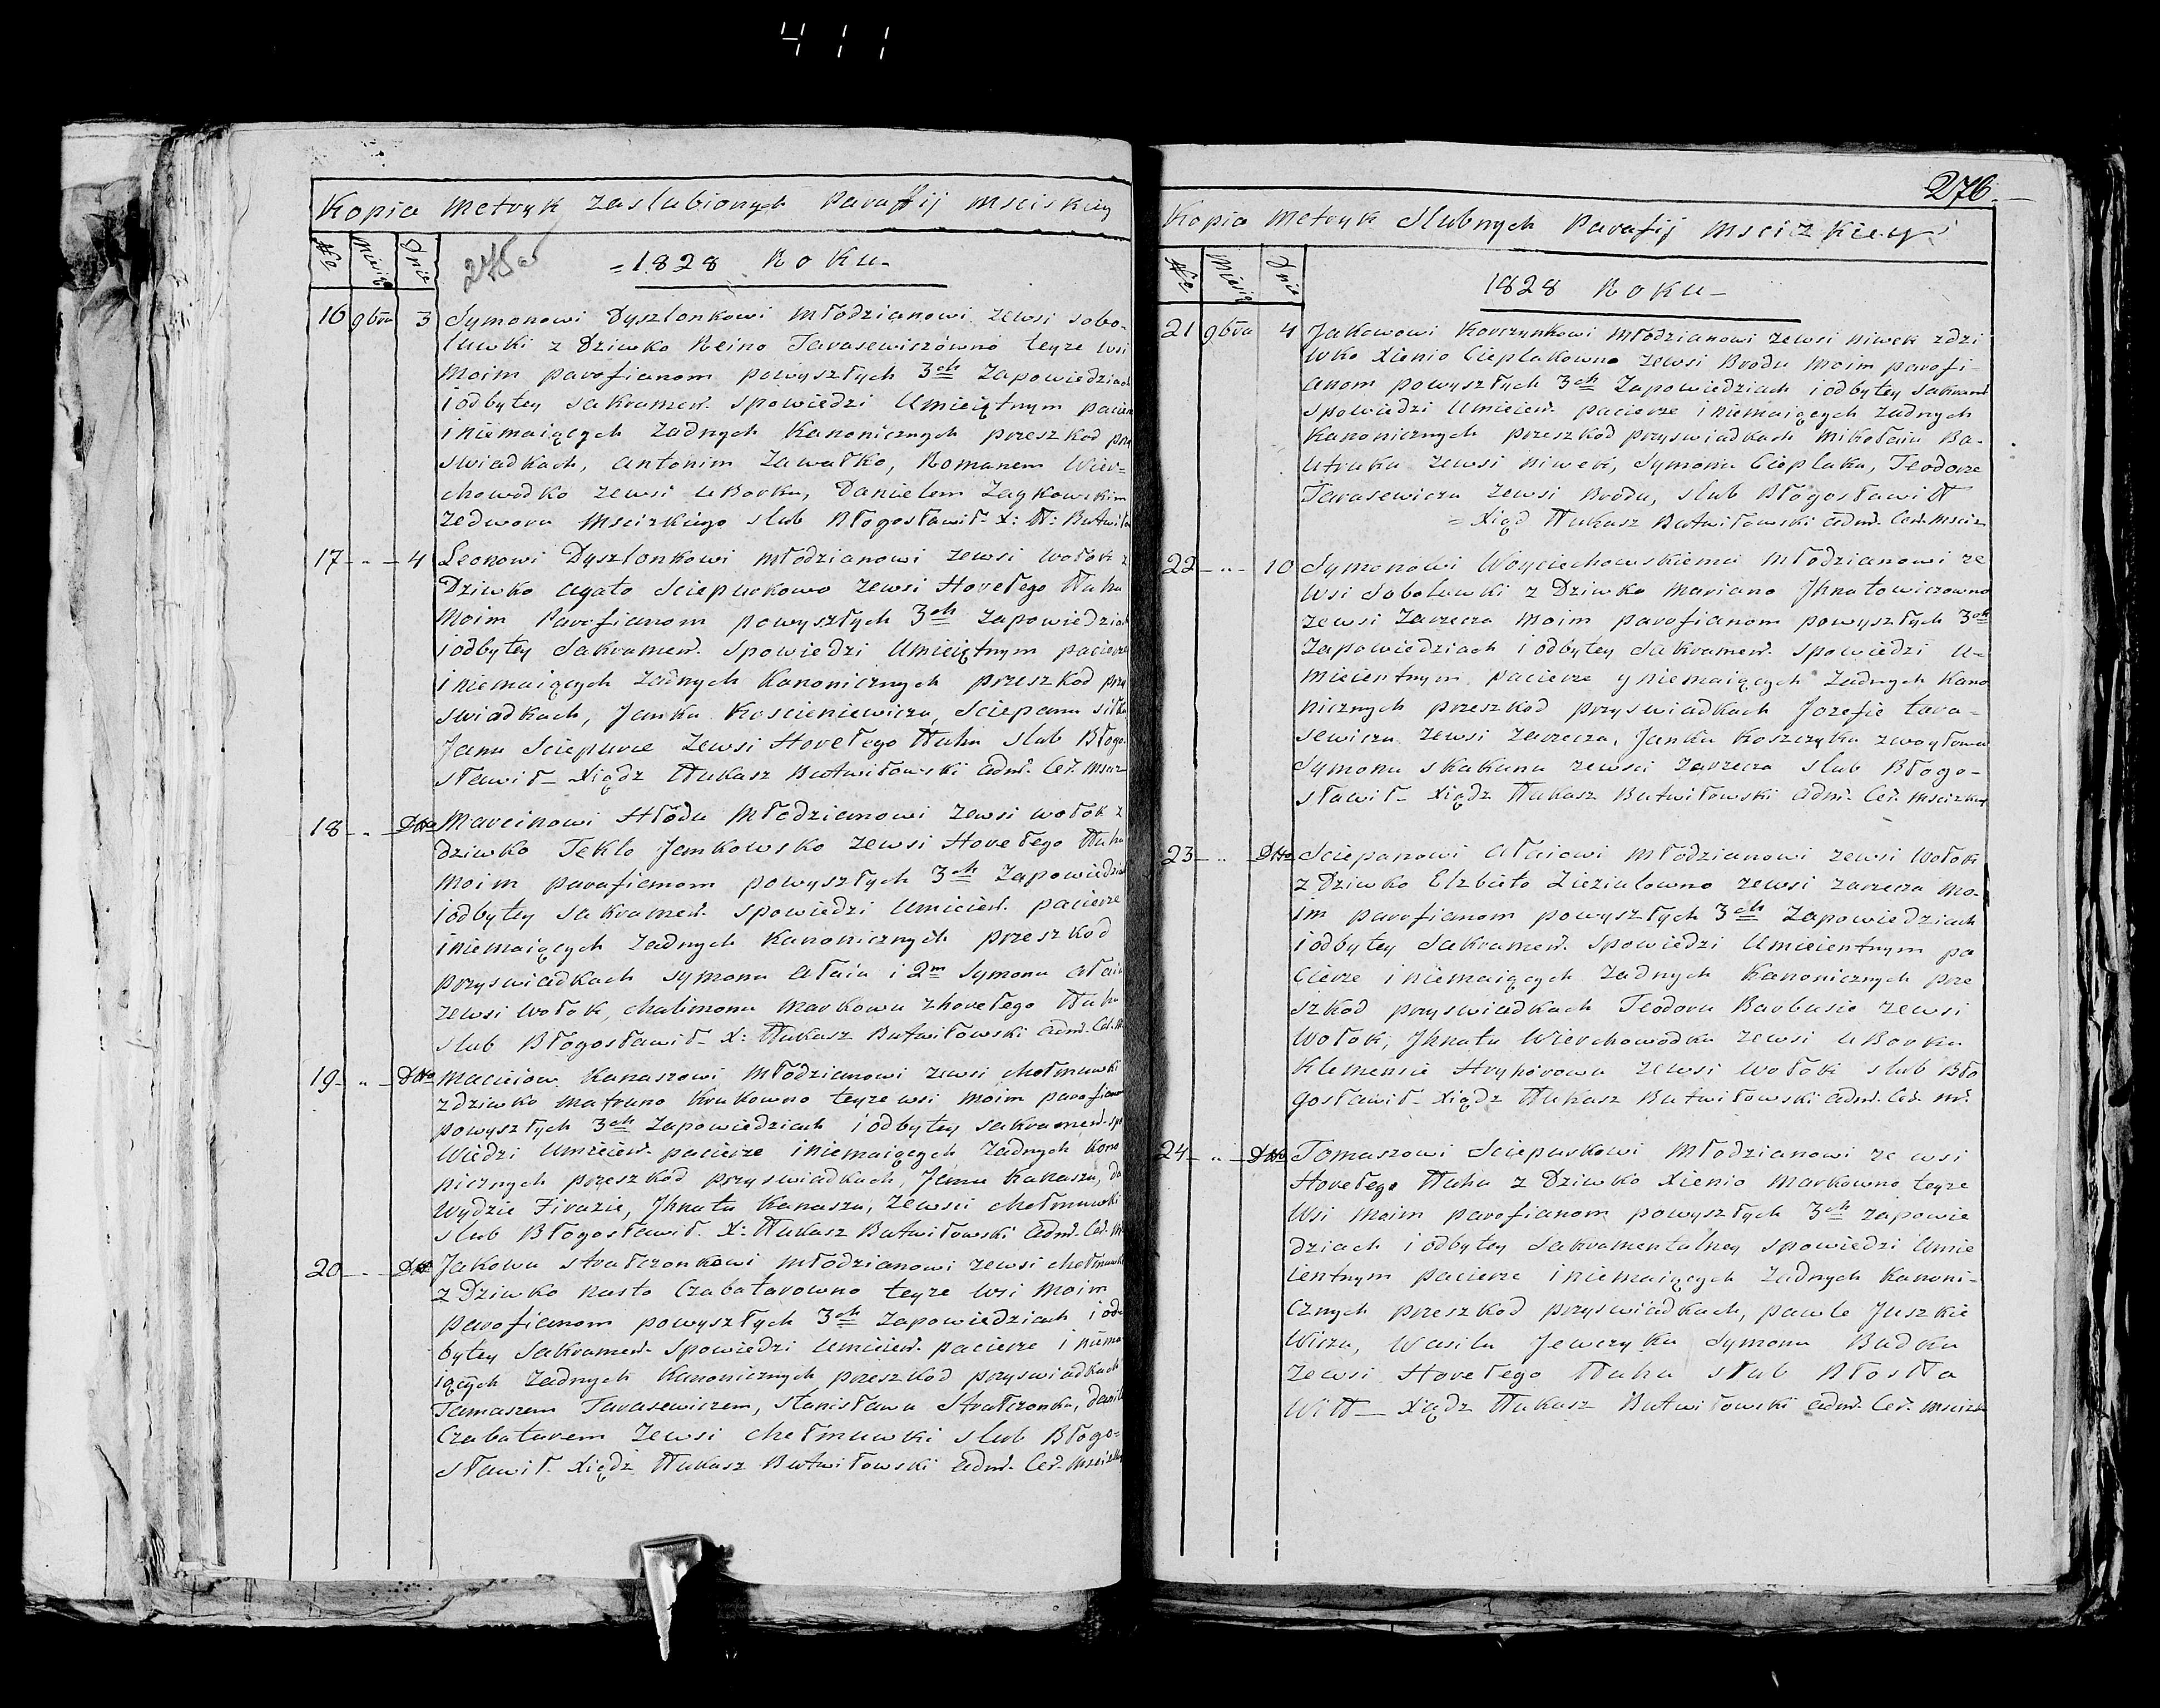 411
Kopia Metryk zaslubionych Paraffij Msciskiey
No Miesią Dnie
275a
= 1828 Roku -
16 9bra 3 Symonowi Dyszlonkowi Młodzianowi zewsi sobo-
luwki z Dziwko Reino Tarasewiczówno teyze wsi
Moim parofianom powyszłych 3ch Zapowiedziach
i odbytey sakramen. spowiedzi Umieiętnym pacierz
i niemaiących żadnych Kanonicznych przeszkod przy
swiadkach, antonim Zawałko, Romanem Wier-
chowodko zewsi uBorku, Danielem Zagkowskim
zedworu Mscizkiego slub Błogosławił X: Ł: Butwiło
17 - „ - 4 Leonowi Dyszlonkowi Młodzianowi zewsi Wołok z
Dziwko agato Sciepurkowo zewsi Horełego Łuhu
Moim Parofianom powyszłych 3ch Zapowiedziach
i odbytey Sakramen. Spowiedzi Umieiętnym pacierze
i niemaiących żadnych Kanonicznych przeszkod przy
swiadkach, Janku Koscieniewiczu, Sciepanu silku
Janu Sciepurce zewsi Horełego Łuhu slub Błogo-
sławił - Xiądz Łukasz Butwiłowski adm. Cer. Msciz
18 - „ - Dtto Marcinowi Hłodu Młodzianowi zewsi wołok z
dziwko Teklo Jankowsko zewsi Horełego Łuhu
Moim parafianom powyszłych 3ch Zapowiedziach
i odbytey Sakramen. spowiedzi Umieien. pacierze
i niemaiących żadnych Kanonicznych przeszkod
przyswiadkach symonu ałaiu i 2m Symonu ałaiu
zewsi wołok, chalimonu markowu zhorełego Łuhu
slub Błogosławił - X: Łukasz Butwiłowski adm. Cer. M
19 - „ - Dtto Macieiow. Kanaszowi Młodzianowi zewsi chełmuwki
z dziwko matruno Krukowno teyze wsi moim parofianom
powyszłych 3ch Zapowiedziach i odbytey sakramen. spo
wiedzi Umieien. pacierze i niemaiących żadnych kano
nicznych przeszkod przyswiadkach, Janu Kanaszu, da
wydzie Zirazie, Jhnatu Kanaszu, zewsi chełmuwki
slub Błogosławił. X: Łukasz Butwiłowski adm. Cer. M
20 - „ - Dtto Jakowu strałczonkowi młodzianowi zewsi chełmuwki
z Dziwko nasto Czabatarowno teyze wsi Moim
parofianom powyszłych 3ch Zapowiedziach i od-
bytey Sakramen. Spowiedzi Umieien. pacierze i niema-
iących żadnych Kanonicznych przeszkod przyswiadkach
Tamaszem Tarasewiczem, stanisława strałczonku, danil
Czabatarem zewsi chełmuwki slub Błogo-
sławił. Xiądz Łukasz Butwiłowski adm. Cer. Mscizki
276.
Kopia Metryk Slubnych Parafij Mscizkiey
No Miesią Dnie
1828 Roku -
21 9bra 4 Jakowowi Korczynkowi Młodzianowi zewsi niwek zdzi
wko Xienio Cieplakowno zewsi Brodu Moim parofi-
anom powyszłych 3ch Zapowiedziach i odbytey sakramen
spowiedzi Umieien. pacierze i niemaiących żadnych
Kanonicznych przeszkod przyswiadkach Mikołaiu Ba-
utruku zewsi niwek, Symonu Cieplaku, Teodorze
Tarasewiczu zewsi Brodu, slub BłogosławiŁ
= Xiąd Łukasz Butwiłowski adm. Cer. Msciz
22 - „ - 10 Symonowi Woyciechowskiemu Młodzianowi ze
wsi Soboluwki z Dziwko Mariano Jhnatowiczowno
zewsi Zarzecza Moim parofianom powyszłych 3ch
Zapowiedziach i odbytey Sakramen. spowiedzi u-
mieientnym pacierze y niemaiących żadnych Kano
nicznych przeszkod przyswiadkach Jozefie tara-
sewiczu zewsi zarzecza, Janku Koszczyku zwoytowa
symonu skakunu zewsi zarzecza slub Błogo-
sławił - Xiądz Łukasz Butwiłowski adm. Cer. Mscizkiey
23 - „ - Dtto Sciepanowi ałaiowi Młodzianowi zewsi Wołok
z Dziwko Elzbieto Ziezialowno zewsi zarzecza mo-
im parofianom powyszłych 3ch Zapowiedziach
i odbytey Sakramen. Spowiedzi Umieientnym pa
cierze i niemaiących żadnych Kanonicznych prze
szkod przyswiadkach Teodoru Barbusio zewsi
Wołok, Jhnatu Wierchowodku zewsi uBorku
Klemensie Hryhorowu zewsi wołok slub Bło
gosławił - Xiądz Łukasz Butwiłowski adm. Cer. M.
24 - „ - Dtto Tomaszowi Sciepurkowi Młodzianowi ze wsi
Horełego Łuhu z Dziwko Xienio Markowno teyze
wsi Moim parofianom powyszłych 3ch zapowie
dziach i odbytey Sakramentalney spowiedzi Umie
ientnym pacierze i niemaiących żadnych Kanoni-
cznych przeszkod przyswiadkach, pawle Juszkie
wiczu, Wasilu Jewczyku Symonu Budku
zewsi Horełego Łuhu słub BłosŁa
wiŁ - Xiądz Łukasz Butwiłowski adm. Cer. Mscizk